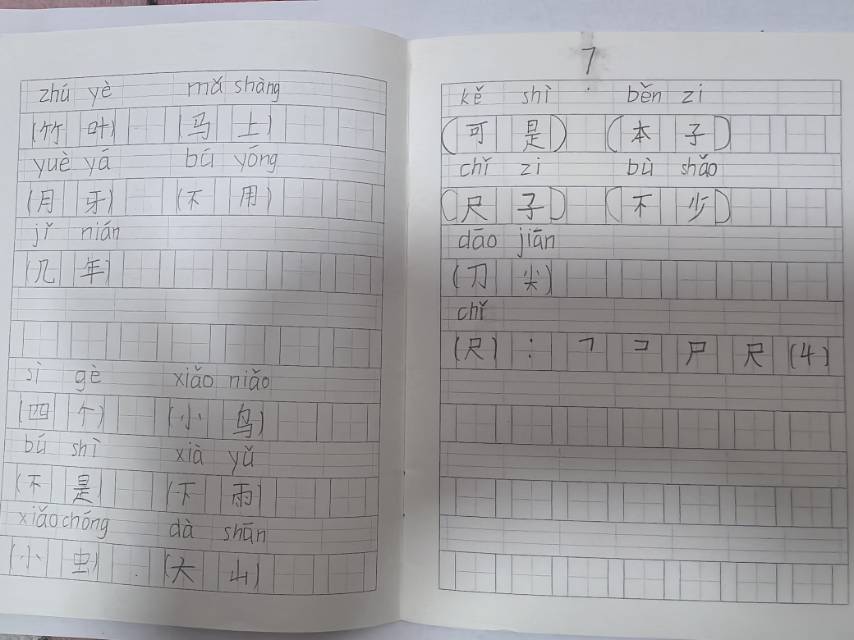 zhú yè mǎ shàng
(竹 叶) (马 上)
yuè yá bú yòng
(月 牙) (不 用)
jǐ nián
(几 年)
sì gè xiǎo niǎo
(四 个) (小 鸟)
bú shì xià yǔ
(不 是) (下 雨)
xiǎo chóng dà shān
(小 虫) (大 山)
7
kě shì běn zi
(可 是) (本 子)
chǐ zi bù shǎo
(尺 子) (不 少)
dāo jiān
(刀 尖)
chǐ
(尺) : ㇕ コ 尸 尺 (4)